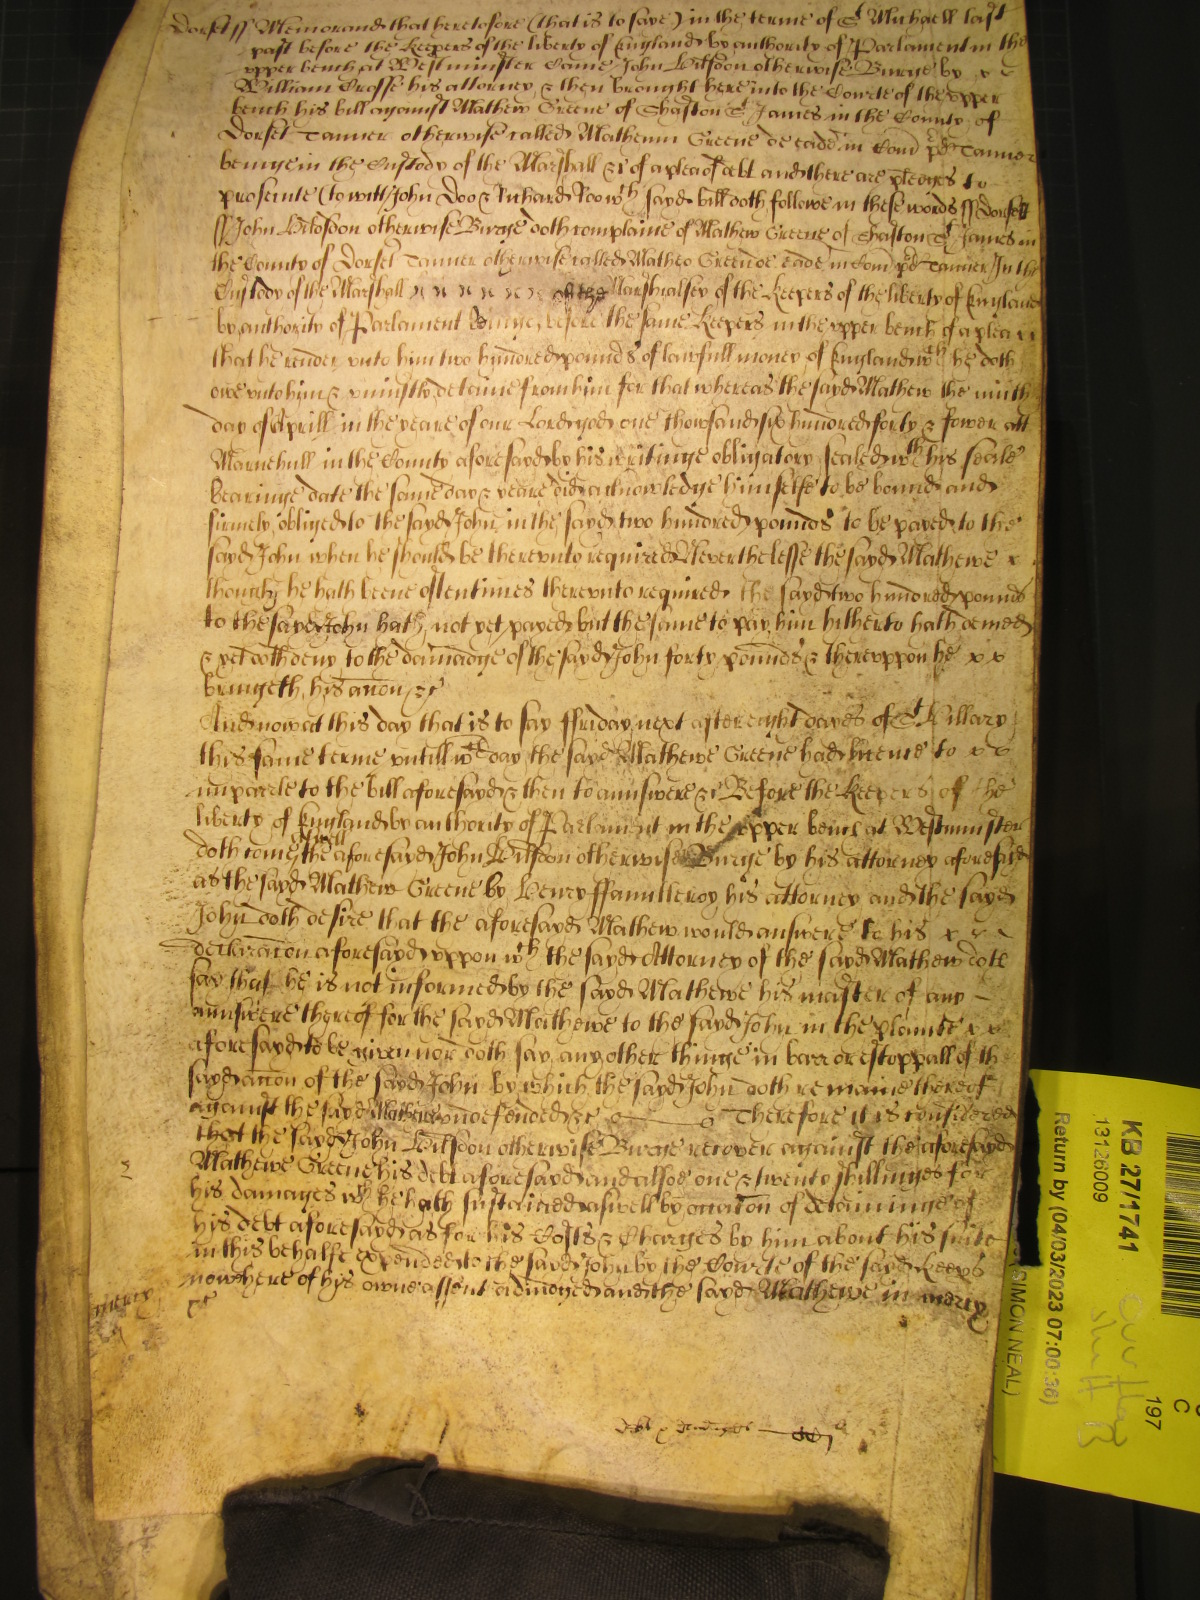 Dorset ss Memorand that heretofore (that is to saye) in the terme of St Michaell last
past before the Keepers of the liberty of England by authority of Parlament in the
upper bench at Westminster Came John Hilson otherwise Burge by x x
William Crosse his attorney & then brought here into the Courte of the upper
bench his bill against Mathew Greene of Shaston St James in the County of
Dorset Tanner otherwise called Matheum Greene de ead in Com pd Tanner
beinge in the Custody of the Marshall &c of a plea of debt and there are pledges to
prosecute (to witt) John Doo & Richard Roo wch sayd bill doth followe in these words ss Dorset
ss John Hilson otherwise Burge doth complaine of Mathew Greene of Shaston St James in
the County of Dorset Tanner otherwise called Matheo Greene de eade in Com pd Tanner In the
Custody of the Marshall of the Marshalsey of the Keepers of the liberty of England
by authority of Parlament beinge, before the same Keepers in the upper bench of a plea
that he render unto him two hundred pounds of lawfull money of England wch he doth
owe unto him & uniustly detaine from him for that whereas the sayd Mathew the ninth
day of Aprill in the yeare of our Lord god one thowsand six hundred forty & fower att
Marnehull in the County aforesayd by his writinge obligatory sealed wth his seale
bearinge date the same day & yeare did acknowledge himselfe to be bound and
firmely obliged to the sayd John in the sayd two hundred pounds to be payed to the
sayd John when he should be thereunto required Neverthelesse the sayd Mathewe x
though he hath beene oftentimes thereunto required the sayd two hundred pounds
to the sayd John hath not yet payed but the same to pay him hitherto hath denied
& yet doth deny to the damadge of the sayd John forty pounds & thereuppon he x x
bringeth his accon &c
And now at this day that is to say ffriday next after eight dayes of St Hillary
this same terme untill wch day the sayd Mathewe Greene had licence to x x
imparle to the bill aforesayd & then to answere &c Before the Keepers of the
liberty of England by authority of Parlament in the upper bench at Westminster
doth come aswell the aforesayd John Hilson otherwise Burge by his attorney aforesayd
as the sayd Mathew Greene by Henry ffauntleroy his attorney and the sayd
John doth desire that the aforesayd Mathew would answere to his x x x
declaracon aforesayd uppon wch the sayd Attorney of the sayd Mathew doth
say that he is not informed by the sayd Mathewe his master of any
answere thereof for the sayd Mathewe to the sayd John in the plainte x x
aforesayd to be given nor doth say any other thinge in barr or estoppall of the
sayd accon of the sayd John by which the sayd John doth remaine thereof
against the sayd Mathewe undefended &c Therefore it is considered
that the sayd John Hilson otherwise Burge recover against the aforesayd
Mathewe Greene his debt aforesayd and alsoe one & twenty shillinges for
his damages wch he hath sustained aswell by occasion of detaininge of
his debt aforesayd as for his Costs & Charges by him about his suite
in this behalfe expended to the sayd John by the Courte of the sayd Keeps
now here of his owne assent adiudged and the sayd Mathewe in mercy
mercy &c
debt & damages
KB 27/1741
13126009
Return by (04/03/2023 07:00:36)
(SIMON NEAL)
197
C